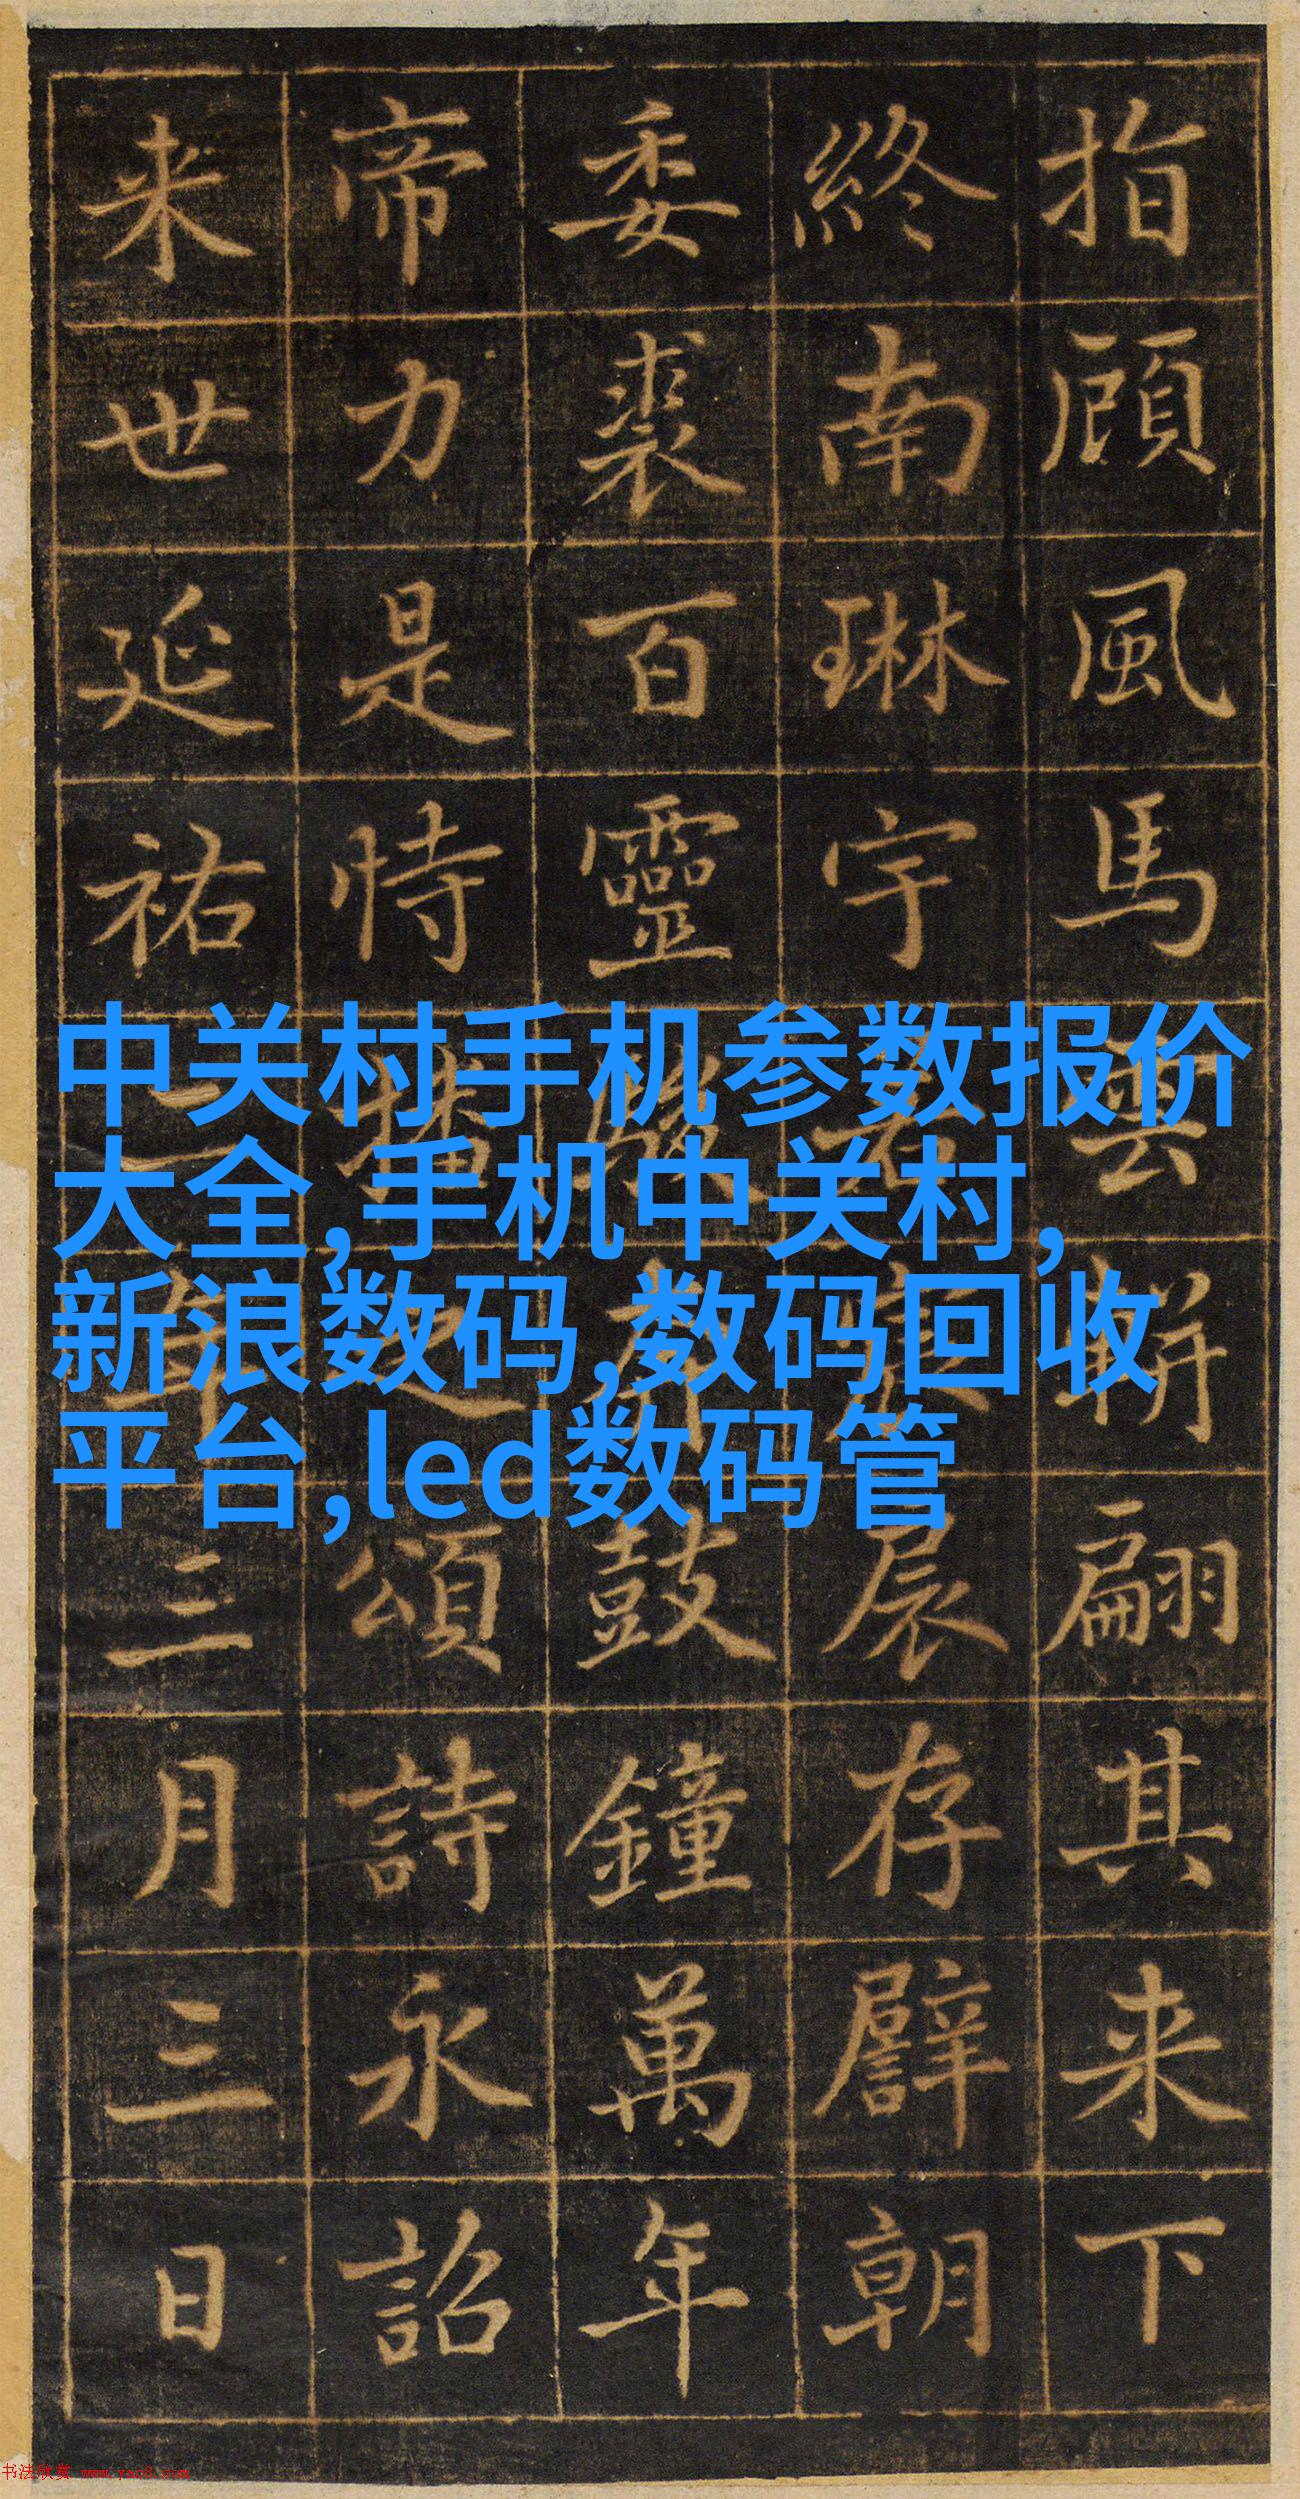 指顧風馬雲軿翩其来下
終南琳宇若存譬朝
委裘百靈駿奔鼓鐘萬年
帝力是恃播之頌詩永詔
来世延祐二年三月三日
中关村手机参数报价
大全,手机中关村,
新浪数码,数码回收
平台,led数码管
书法欣赏 www.yac8.com